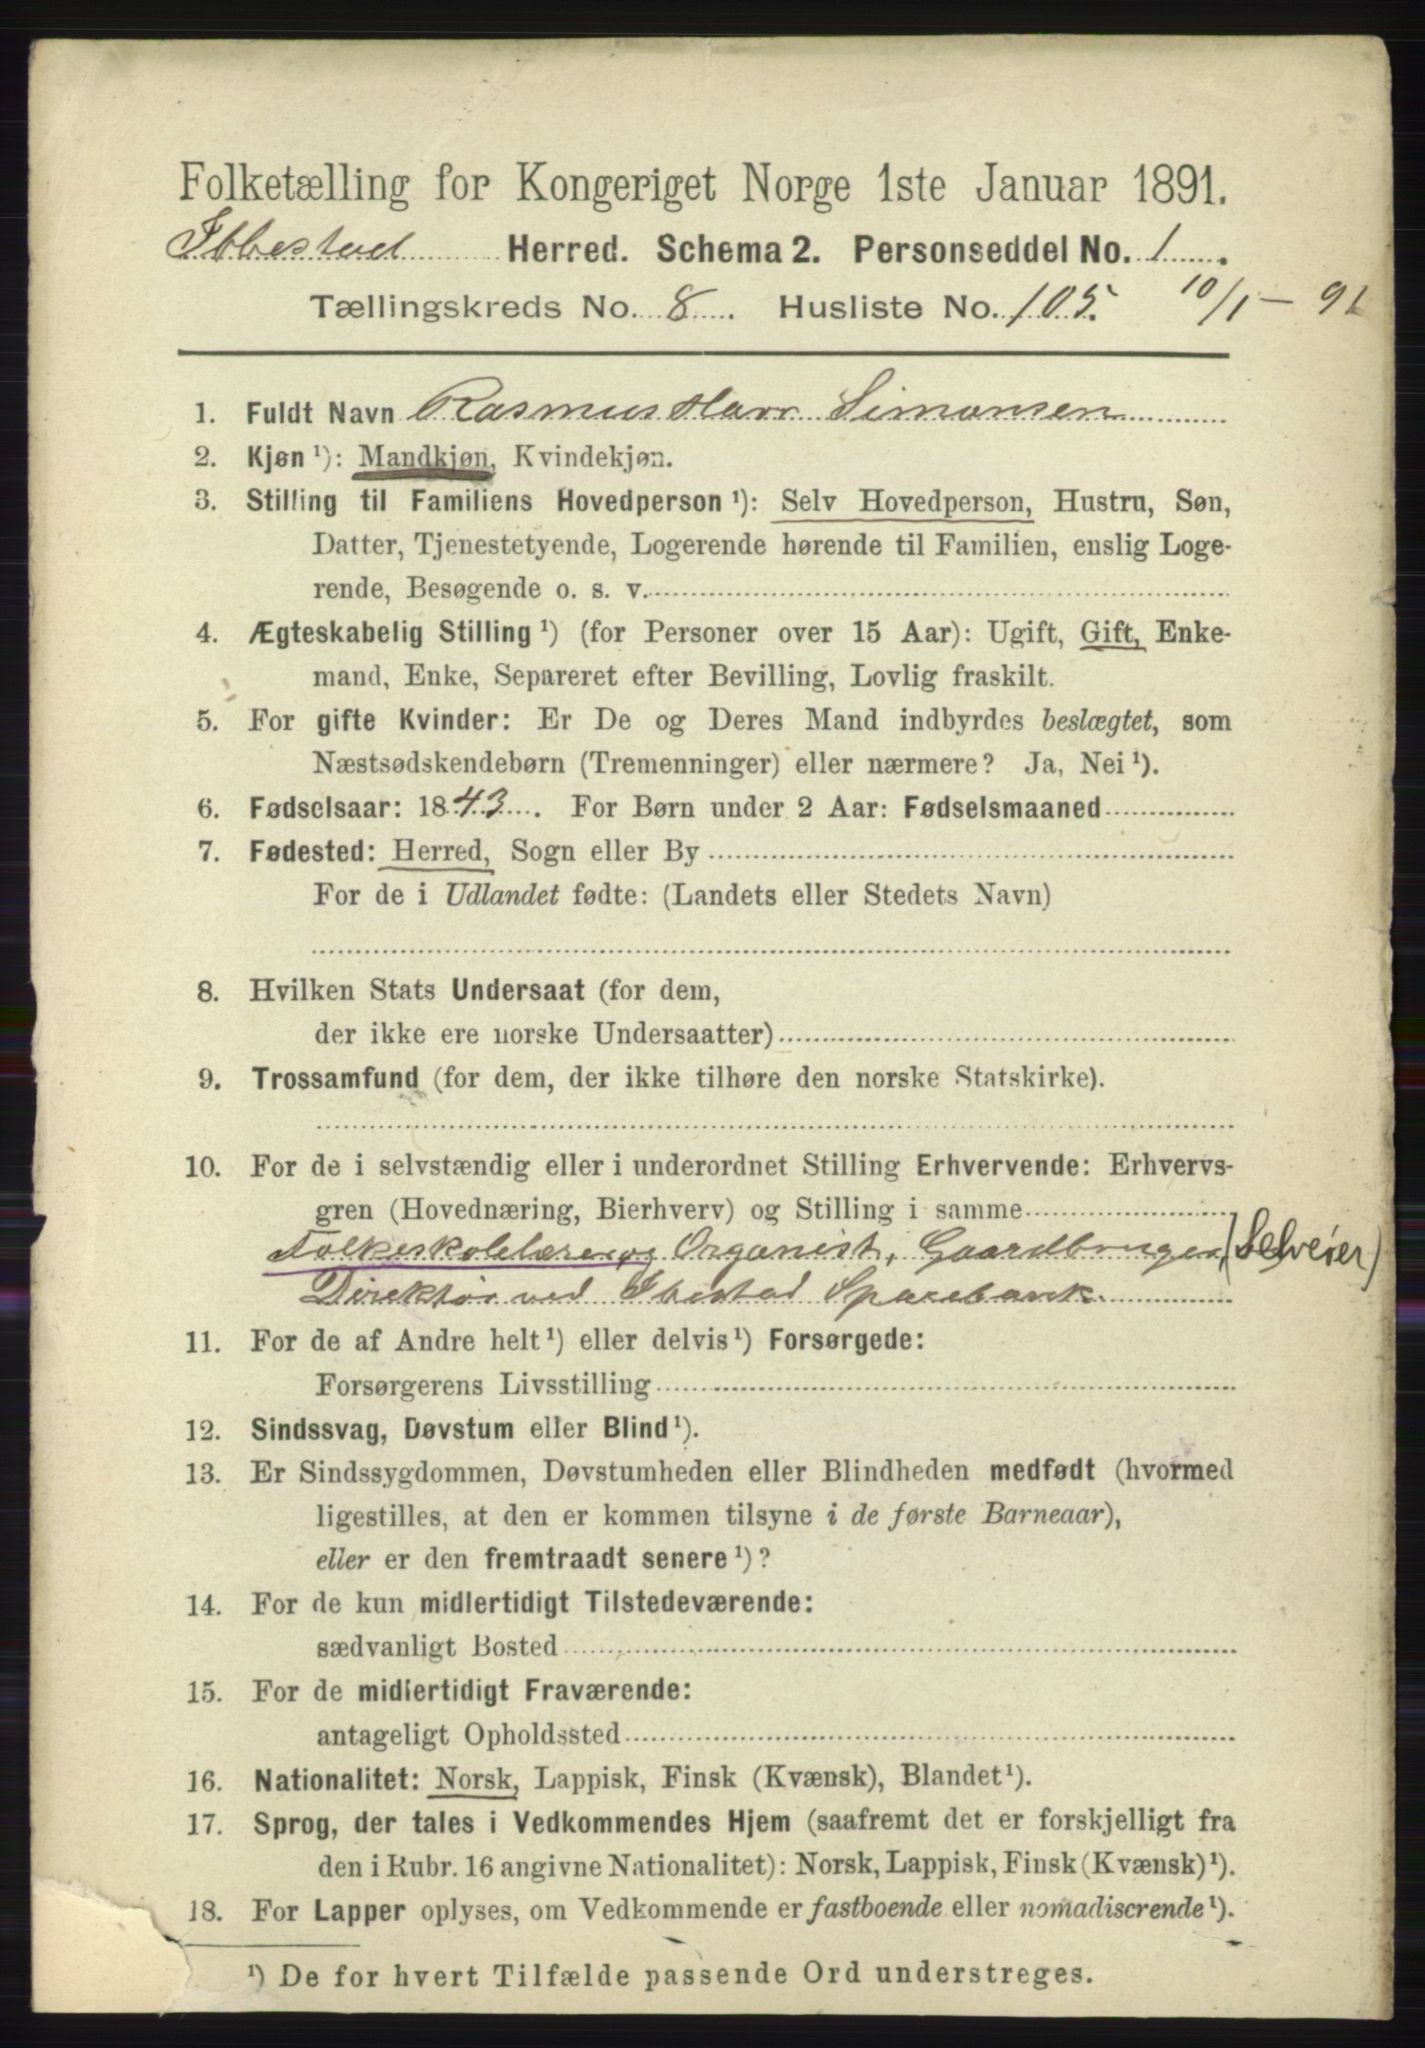 Folketælling for Kongeriget Norge 1ste Januar 1891.
Ibbestad Herred. Schema 2. Personseddel No. 1
Tællingskreds No. 8. Husliste No. 105. 10/1 – 91
1. Fuldt Navn Rasmus Havr Simonsen
2. Kjøn ¹): Mandkjøn, Kvindekjøn.
3. Stilling til Familiens Hovedperson ¹): Selv Hovedperson, Hustru, Søn,
Datter, Tjenestetyende, Logerende hørende til Familien, enslig Loge-
rende, Besøgende o. s. v.
4. Ægteskabelig Stilling ¹) (for Personer over 15 Aar): Ugift, Gift, Enke-
mand, Enke, Separeret efter Bevilling, Lovlig fraskilt.
5. For gifte Kvinder: Er De og Deres Mand indbyrdes beslægtet, som
Næstsødskendebørn (Tremenninger) eller nærmere? Ja, Nei ¹).
6. Fødselsaar: 1843. For Børn under 2 Aar: Fødselsmaaned
7. Fødested: Herred, Sogn eller By
For de i Udlandet fødte: (Landets eller Stedets Navn)
8. Hvilken Stats Undersaat (for dem,
der ikke ere norske Undersaatter)
9. Trossamfund (for dem, der ikke tilhøre den norske Statskirke).
10. For de i selvstændig eller i underordnet Stilling Erhvervende: Erhvervs-
gren (Hovednæring, Bierhverv) og Stilling i samme
Folkeskolelærer og Organist, Gaardbruger, (Selveier)
Direktør ved Ibestad Sparebank.
11. For de af Andre helt ¹) eller delvis ¹) Forsørgede:
Forsørgerens Livsstilling
12. Sindssvag, Døvstum eller Blind ¹).
13. Er Sindssygdommen, Døvstumheden eller Blindheden medfødt (hvormed
ligestilles, at den er kommen tilsyne i de første Barneaar),
eller er den fremtraadt senere ¹)?
14. For de kun midlertidigt Tilstedeværende:
sædvanligt Bosted
15. For de midlertidigt Fraværende:
antageligt Opholdssted
16. Nationalitet: Norsk, Lappisk, Finsk (Kvænsk), Blandet ¹).
17. Sprog, der tales i Vedkommendes Hjem (saafremt det er forskjelligt fra
den i Rubr. 16 angivne Nationalitet): Norsk, Lappisk, Finsk (Kvænsk) ¹).
18. For Lapper oplyses, om Vedkommende er fastboende eller nomadiserende ¹).
¹) De for hvert Tilfælde passende Ord understreges.